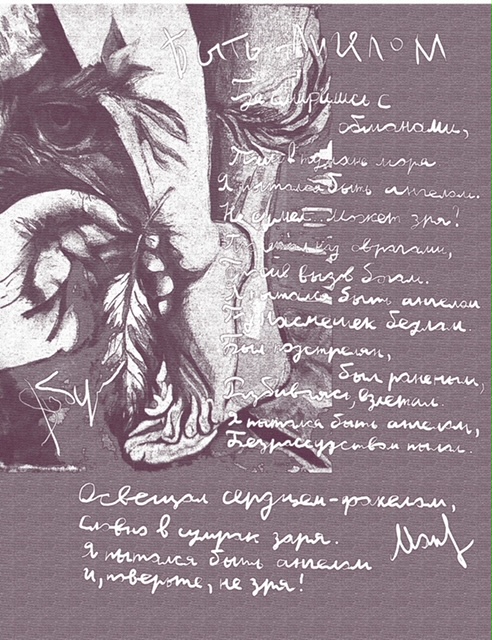 Быть ангелом
с
обманами,
моря
Я пытался быть ангелом.
Не сумел... Может зря?
над оврагами,
вызов богам.
Я пытался быть ангелом
Был подстрелен,
был раненым,
взлетал.
Я пытался быть ангелом,
Безрассудством пылал.
Освещал сердцем-факелом,
словно в сумрак заря.
Я пытался быть ангелом
и, поверьте, не зря!